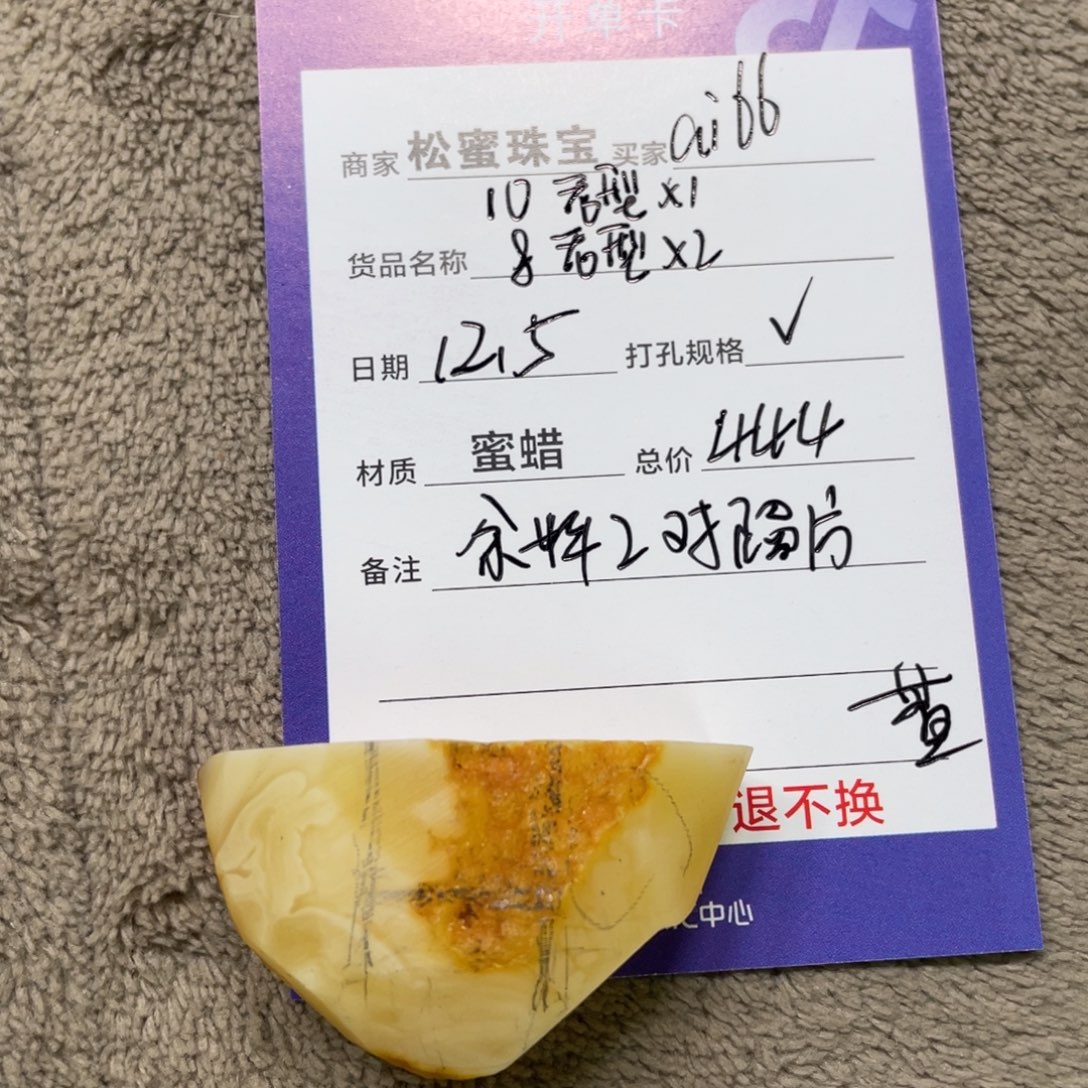 开单卡
商家 松蜜珠宝 买家 aibb
10 君型 x1
货品名称 8 君型 x2
日期 12.5 打孔规格 ✓
材质 蜜蜡 总价 444
备注 余料2对隔片
退不换
中心